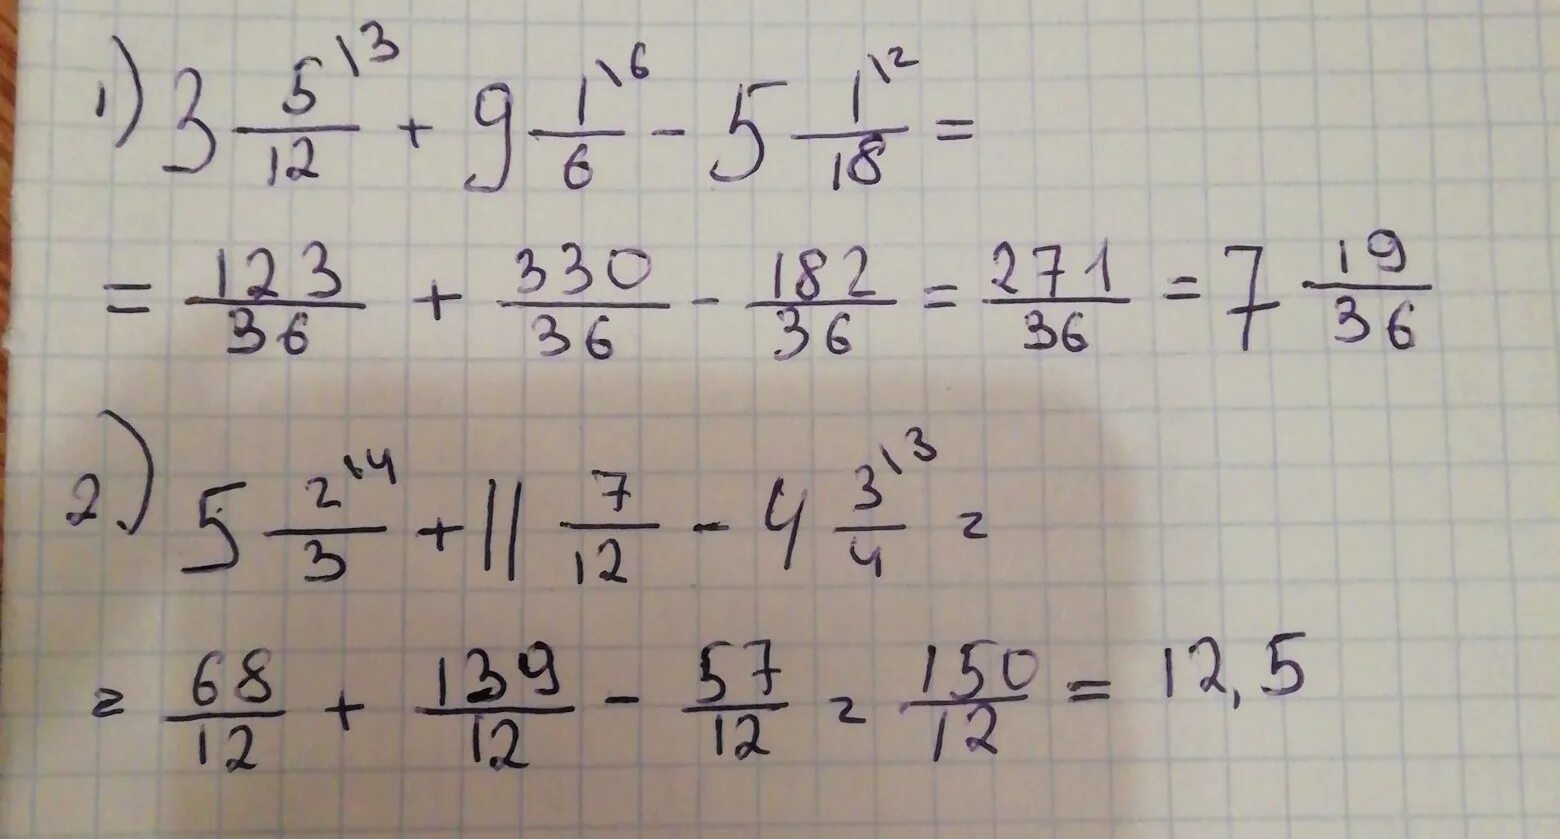 1) 3 5\3/12 + 9 1\6/6 - 5 1\2/18 =
= 123/36 + 330/36 - 182/36 = 271/36 = 7 19/36
2) 5 2\4/3 + 11 7/12 - 4 3\3/4 =
= 68/12 + 139/12 - 57/12 = 150/12 = 12,5